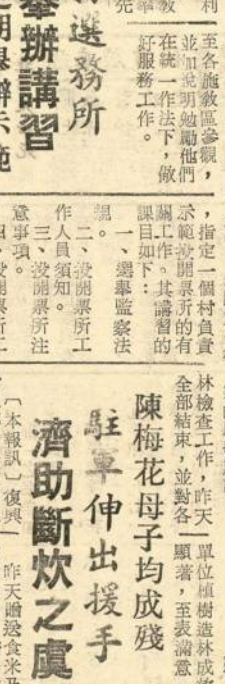 利
至各施教區參觀，
並加說明勉勵他們
在統一作法下，做
好服務工作。
選務所
舉辦講習
，指定一個村負責
示範投開票所的有
關工作。其講習的
課目如下：
一、選舉監察法
規。
二、投開票所工
作人員須知。
三、投開票所注
意事項。
林檢查工作，昨天
全部結束，並對各
單位植樹造林成
顯著，至表滿意
陳梅花母子均成殘
駐軍伸出援手
濟助斷炊之虞
〔本報訊〕復興
昨天贈送食米及